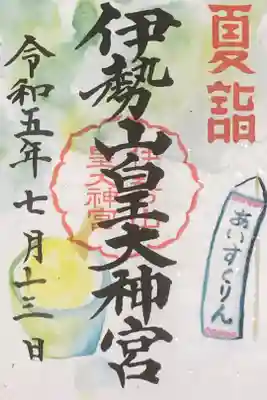 夏詣
伊勢山皇大神宮
令和五年七月十三日
あいすくりん
伊勢山
皇大神宮